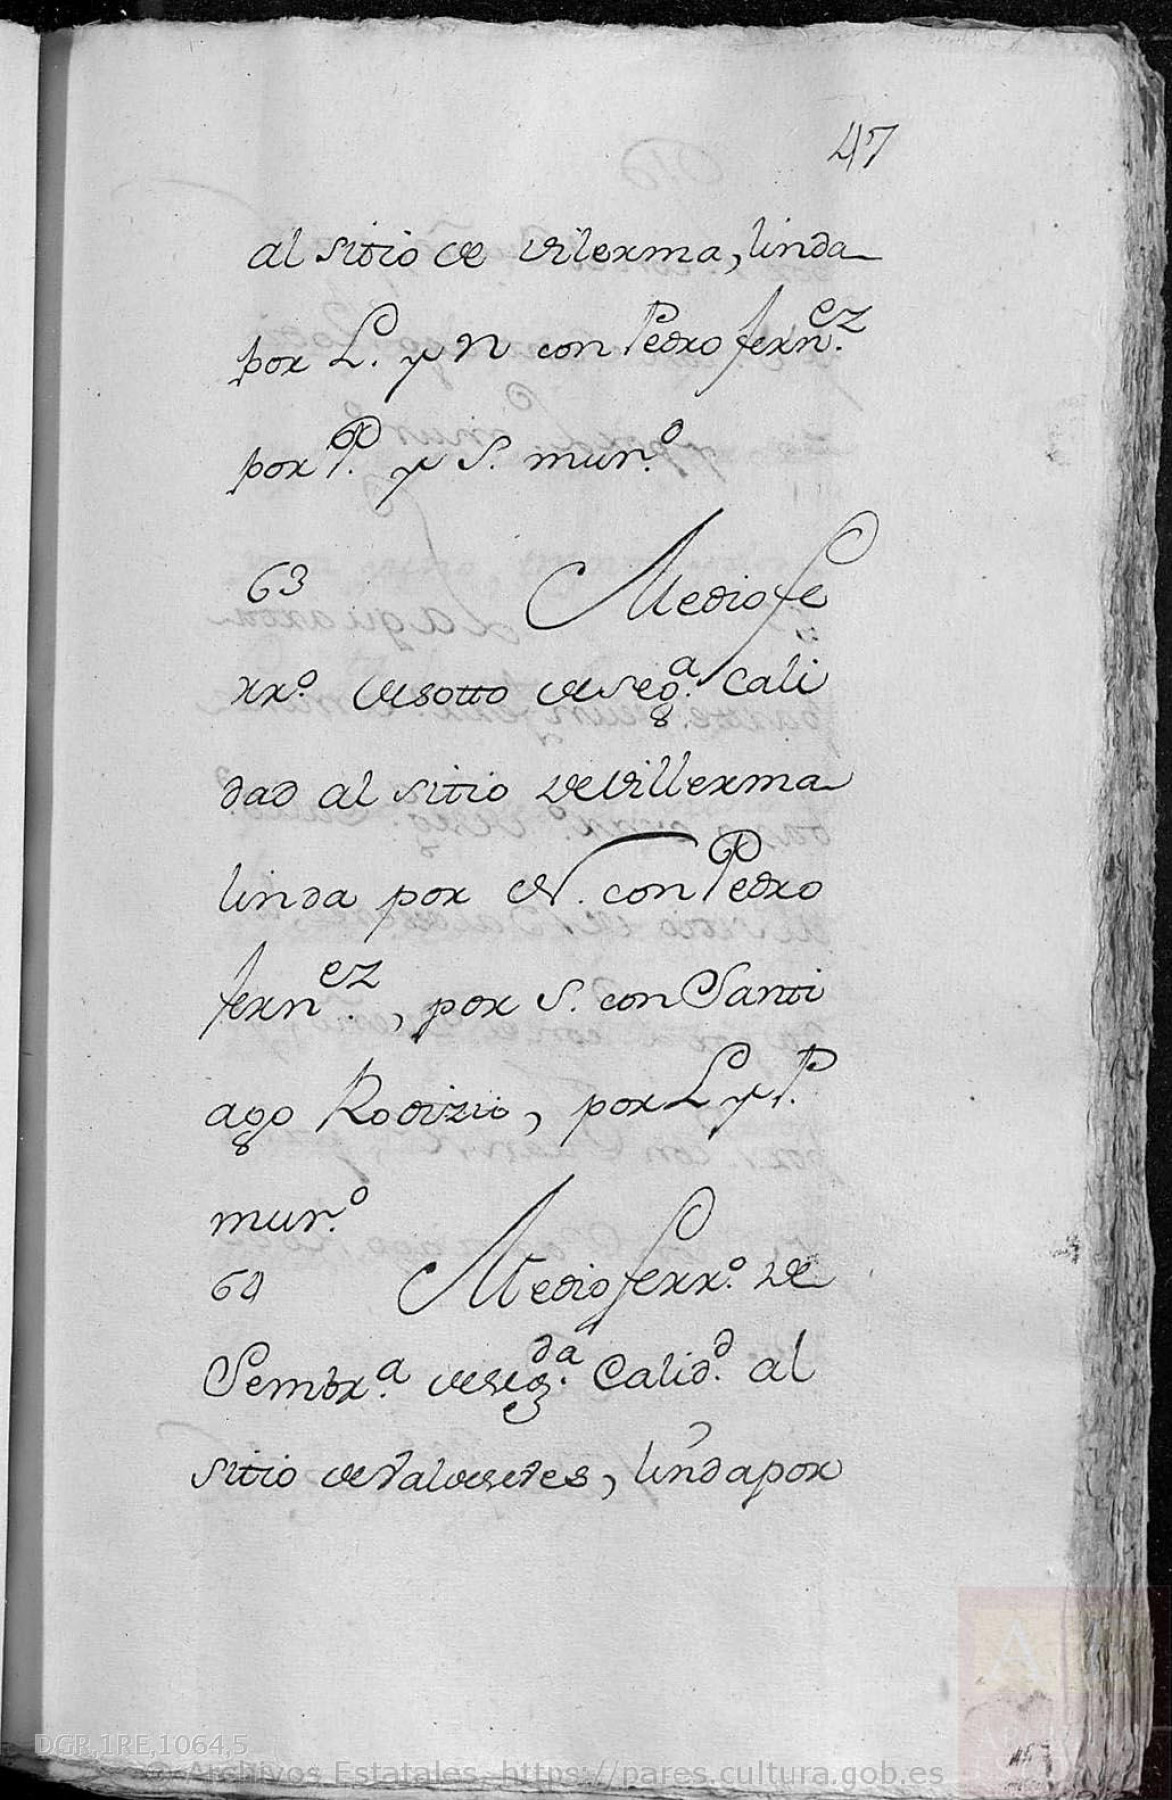 47
al sitio de Vilerma, linda
por L. y N con Pedro fern.ez
por P. y S. mur.o
63 Medio fe
rr.o de sotto de seg.a Cali
dad al sitio de Villerma
linda por N. con Pedro
fern.ez, por S. con Santi
ago Rodizio, por L y P.
mur.o
64 Medio ferr.o de
Sembr.a de seg.da Calid.d al
sitio de Valdesedes, linda por
DGR,1RE,1064,5
© Archivos Estatales, https://pares.cultura.gob.es